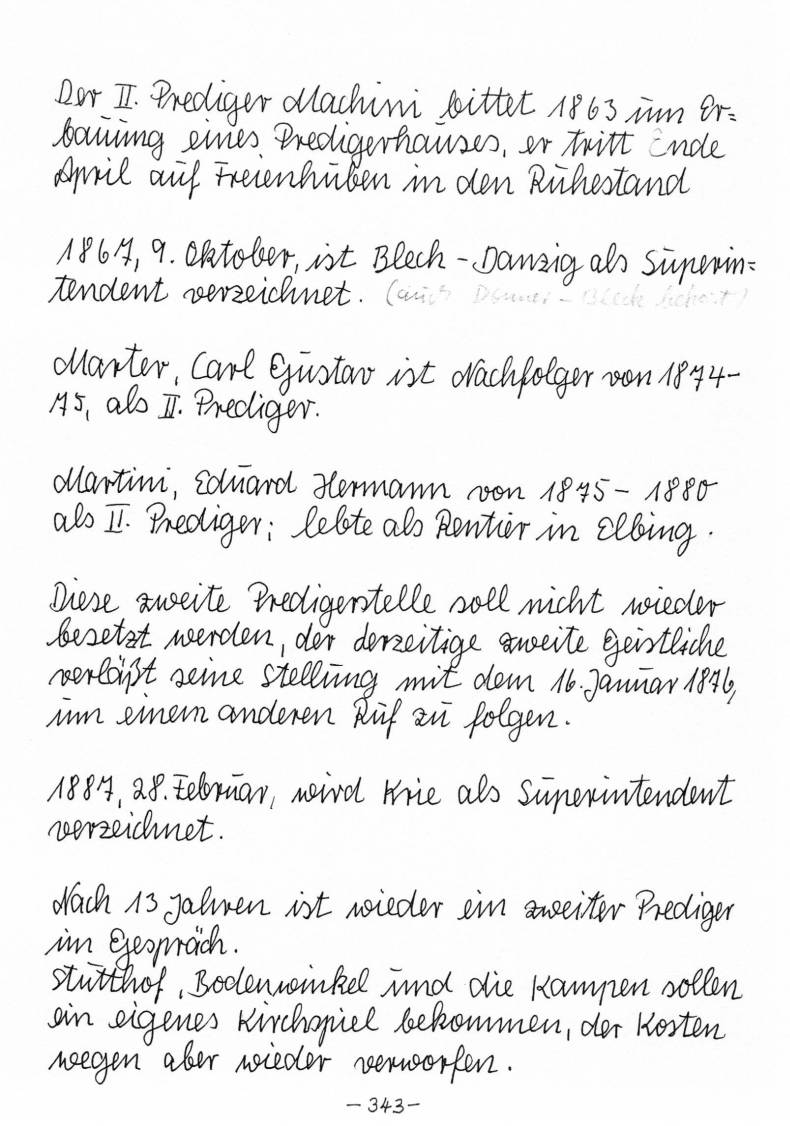 Der II. Prediger Machini bittet 1863 um Er=
bauung eines Predigerhauses, er tritt Ende
April auf Freienhuben in den Ruhestand
1867, 9. Oktober, ist Blech - Danzig als Superin=
tendent verzeichnet. (auch
Marter, Carl Gustav ist Nachfolger von 1874-
75, als II. Prediger.
Martini, Eduard Hermann von 1875 - 1880
als II. Prediger; lebte als Rentier in Elbing.
Diese zweite Predigerstelle soll nicht wieder
besetzt werden, der derzeitige zweite Geistliche
verläßt seine Stellung mit dem 16. Januar 1876,
um einem anderen Ruf zu folgen.
1887, 28. Februar, wird Krie als Superintendent
verzeichnet.
Nach 13 Jahren ist wieder ein zweiter Prediger
im Gespräch.
Stutthof, Bodenwinkel und die Kampen sollen
ein eigenes Kirchspiel bekommen, der Kosten
wegen aber wieder verworfen.
- 343 -